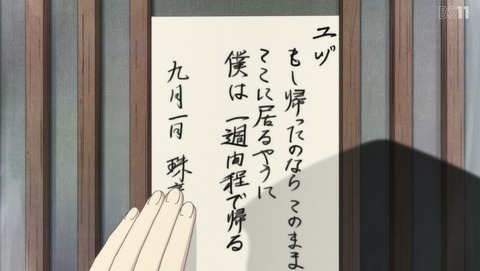 ユヅ
もし帰ったのなら このまま
ここに居るやうに
僕は 一週間程で帰る
九月一日 珠
BS11